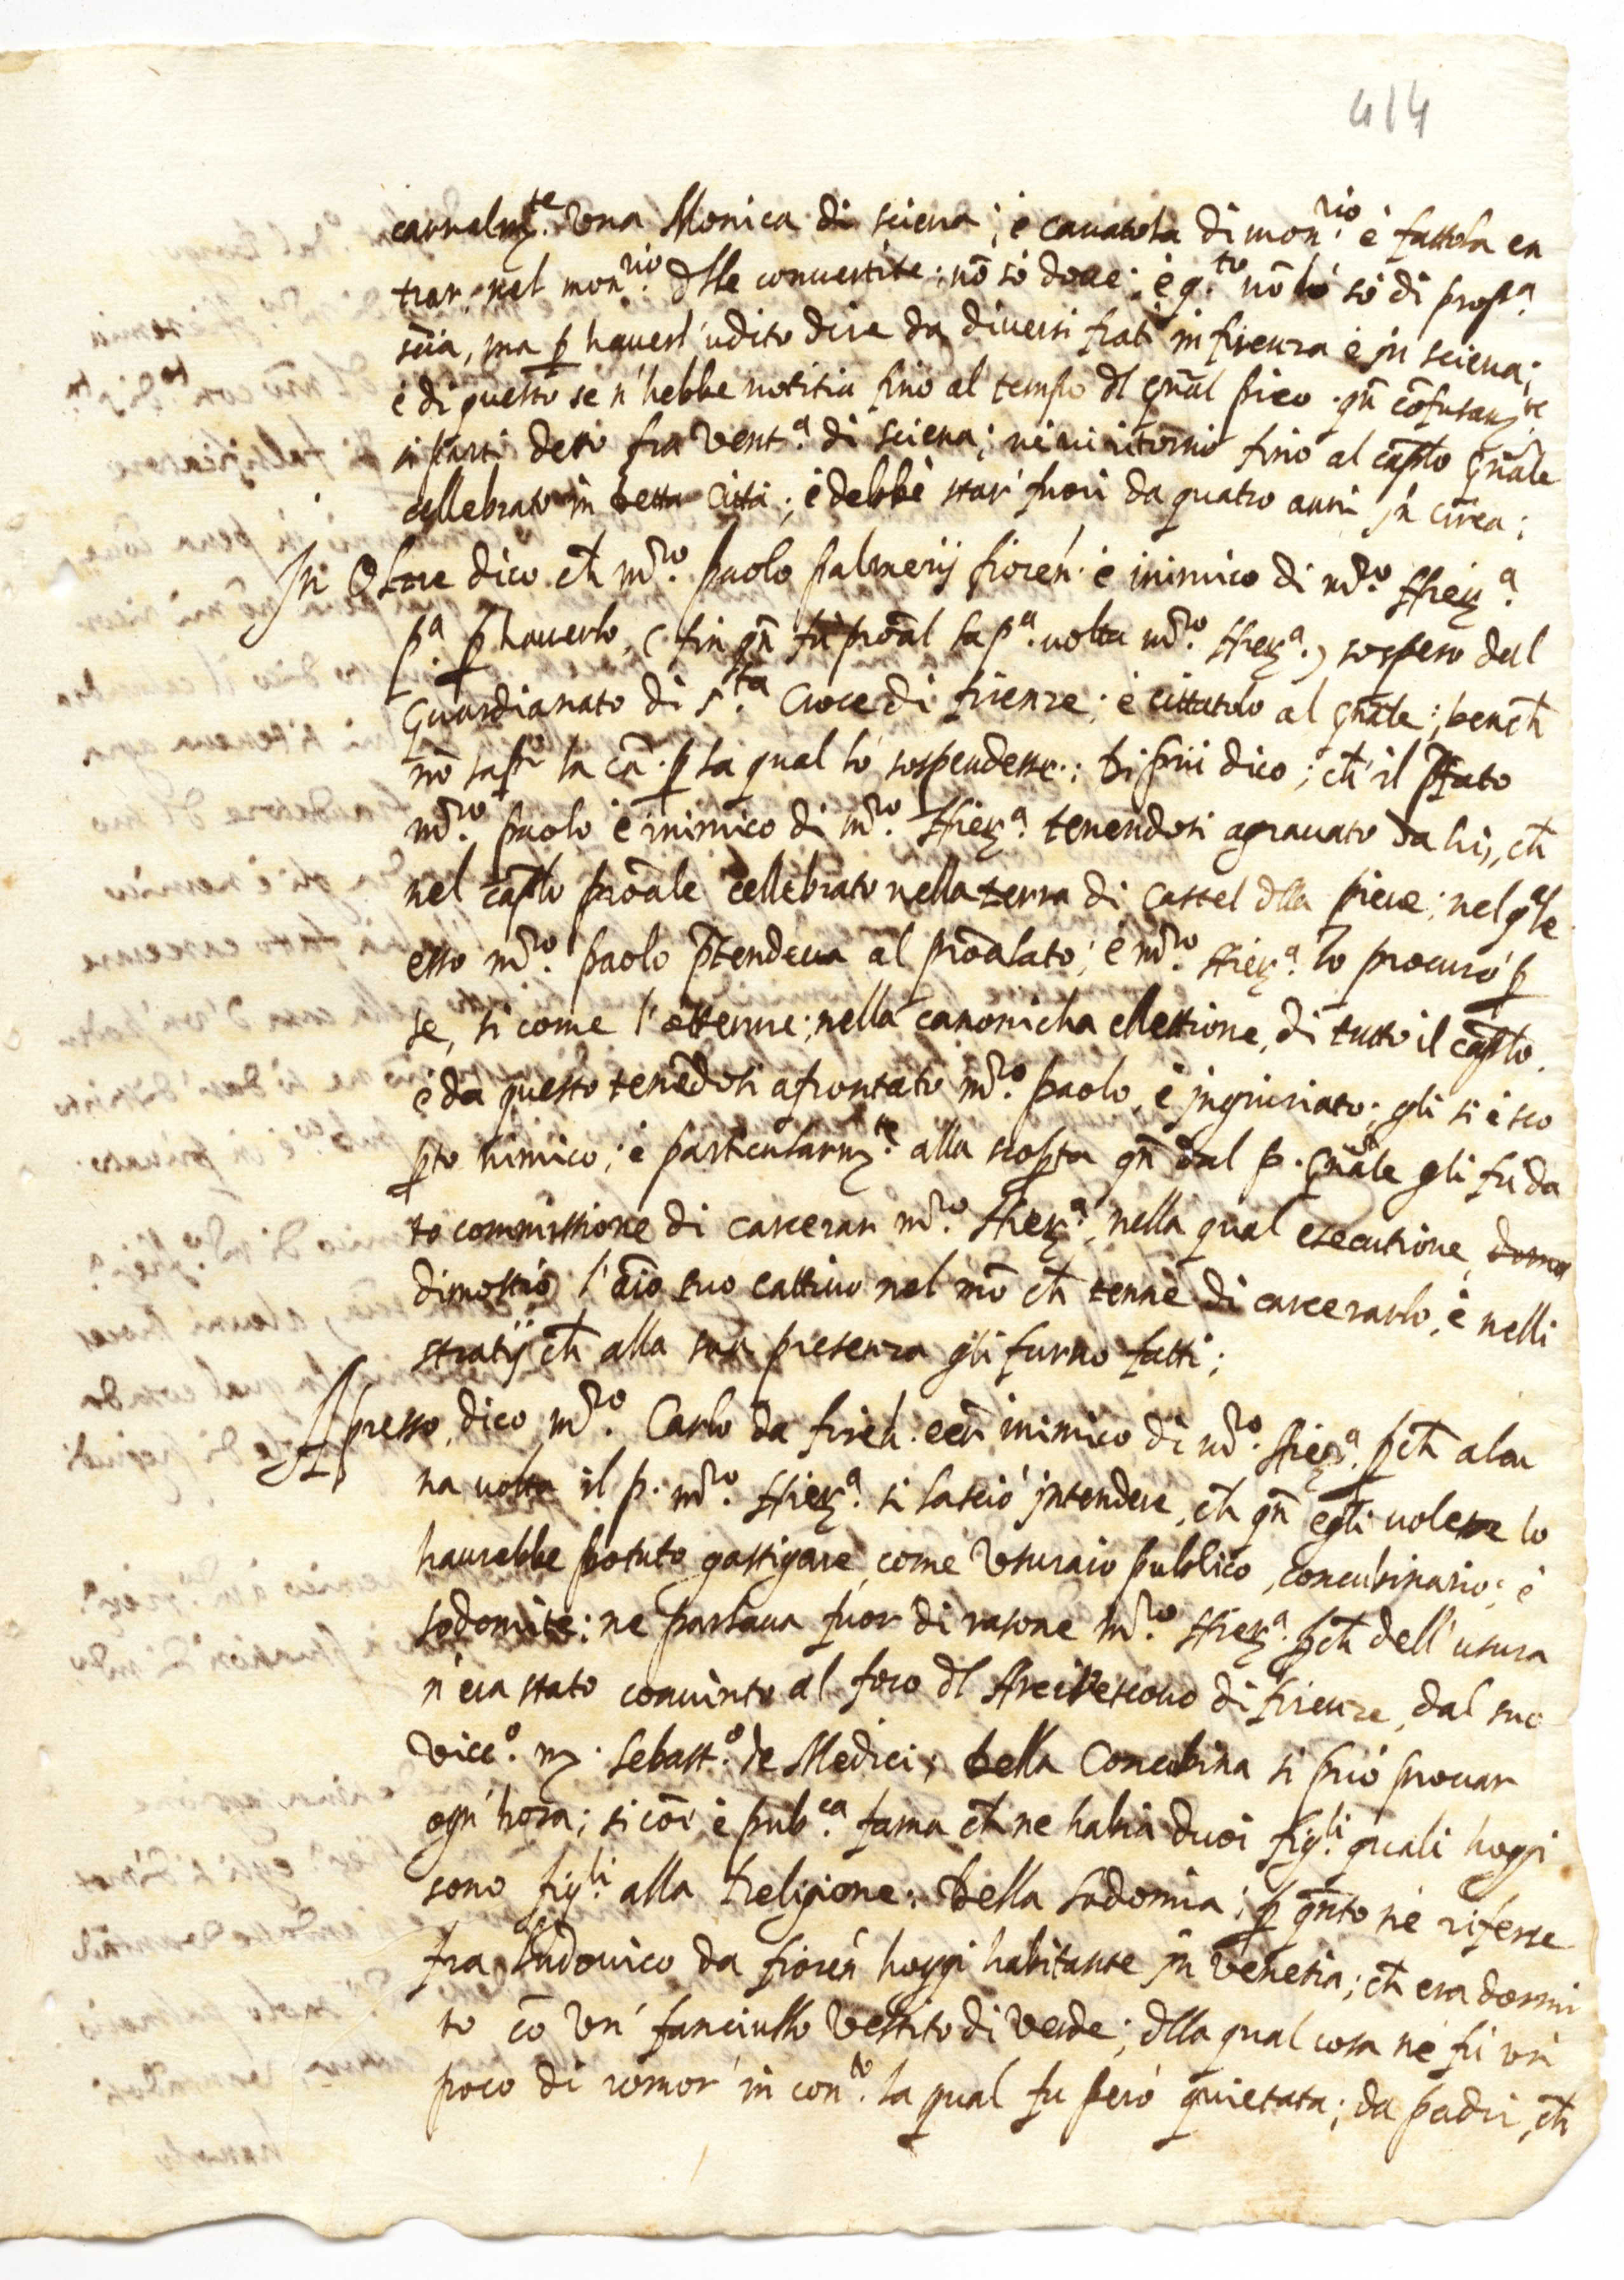 414
carnalm.te Una Monica di sciena; è cauatola di mon.rio è fattola en
trar nel mon.rio dlle conuertite; nõ sò doue; è q.to nõ lò sò di prop.a
scia, ma p hauerl' udito dire da diuersi frati in firenza è in sciena;
è di questo se n'hebbe notitia fino al tempo dl gnãl pico. qñ cõfusam.te
si parti detto fra Vent.a di sciena; nè ui ritornò fino al caplo gnãle
cellebrato in detta Città; è debbè star' fuori da quatro anni in circa;
In Oltre dico ch mr̃o. paolo palmerij fioren. è inimico di mr̃o. Hier.a
p.a p hauerlo, (fin qñ fù proãl la p.a uolta mr̃o. Hier.a) sospeso dal
Guardianato di s.ta Croce di firenze; è cittatolo al gnãle; bench
nõ sapp la cã. p la qual lò sospendesse; Di più dico; ch il pfato
mr̃o. paolo è inimico di mr̃o. Hier.a tenendosi agrauato da lui, ch
nel caplo proãle cellebrato nella terra di Castel dlla pieue; nel q.ale
esso mr̃o. paolo ptendeua al proãlato; è mr̃o. Hier.a lo procurò p
se, si come l'ottenne; nella canonicha ellettione, di tutto il caplo.
è da questo tenẽdosi afrontato mr̃o. paolo, è ingiuriato; gli si è sco
pto nimico; è particularm.te alla scopta qñ dal p. gnãle gli fu da
to commissione di carcerar mr̃o. Hier.a; nella qual esecutione,
dimostrò l'aĩo suo cattiuo nel mõ ch tenne di carcerarlo, è nelli
stratij ch alla sua presenza gli furno fatti;
Apresso, dico mr̃o. Carlo da firen. eẽr inimico di mr̃o. Hier.a pch alcu
na uolta il p. mr̃o. Hier.a si lasciò intendere, ch qñ egli uolesse lo
haurebbe potuto gastigare, come Usuraio publico, concubinario; è
sodomite; ne parlaua fuor di rasone mr̃o. Hier.a pch dell' usura
n'era stato conuinto al foro dl Arciuescouo di firenze, dal suo
Vicc.o m. Sebast.o de Medici; Della Concubina si può prouar
ogn'hora; si cõe è pub.ca fama ch ne habia duoi fig.li quali hoggi
sono fig.li alla Religione; Della Sodomia; p qñto nè riferse
fra Ludouico da fioren hoggi habitante in Venetia; ch era dormi
to cõ Un' fanciullo Vestito di Verde; dlla qual cosa nè fù un
poco di romor' in con.to la qual fu però quietata; da padri, ch